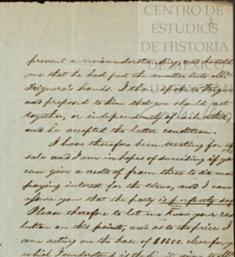 CENTRO DE
ESTUDIOS
DE HISTORIA
prevent a misunderstanding, and he told
me that he had put the matter into Mr.
Figuero's hands. I then spoke to Figuero
and proposed to him that we should act
together, or independently of each other,
and he accepted the latter condition.
I have therefore been treating for
sale and I am in hopes of deciding if you
can give a credit of from three to six mon
paying interest for the same, and I can
assure you that the party is perfectly
Please therefore to let me know your
on this point, and as to the price I
am acting on the basis of $1800 clear for
which I understand is the